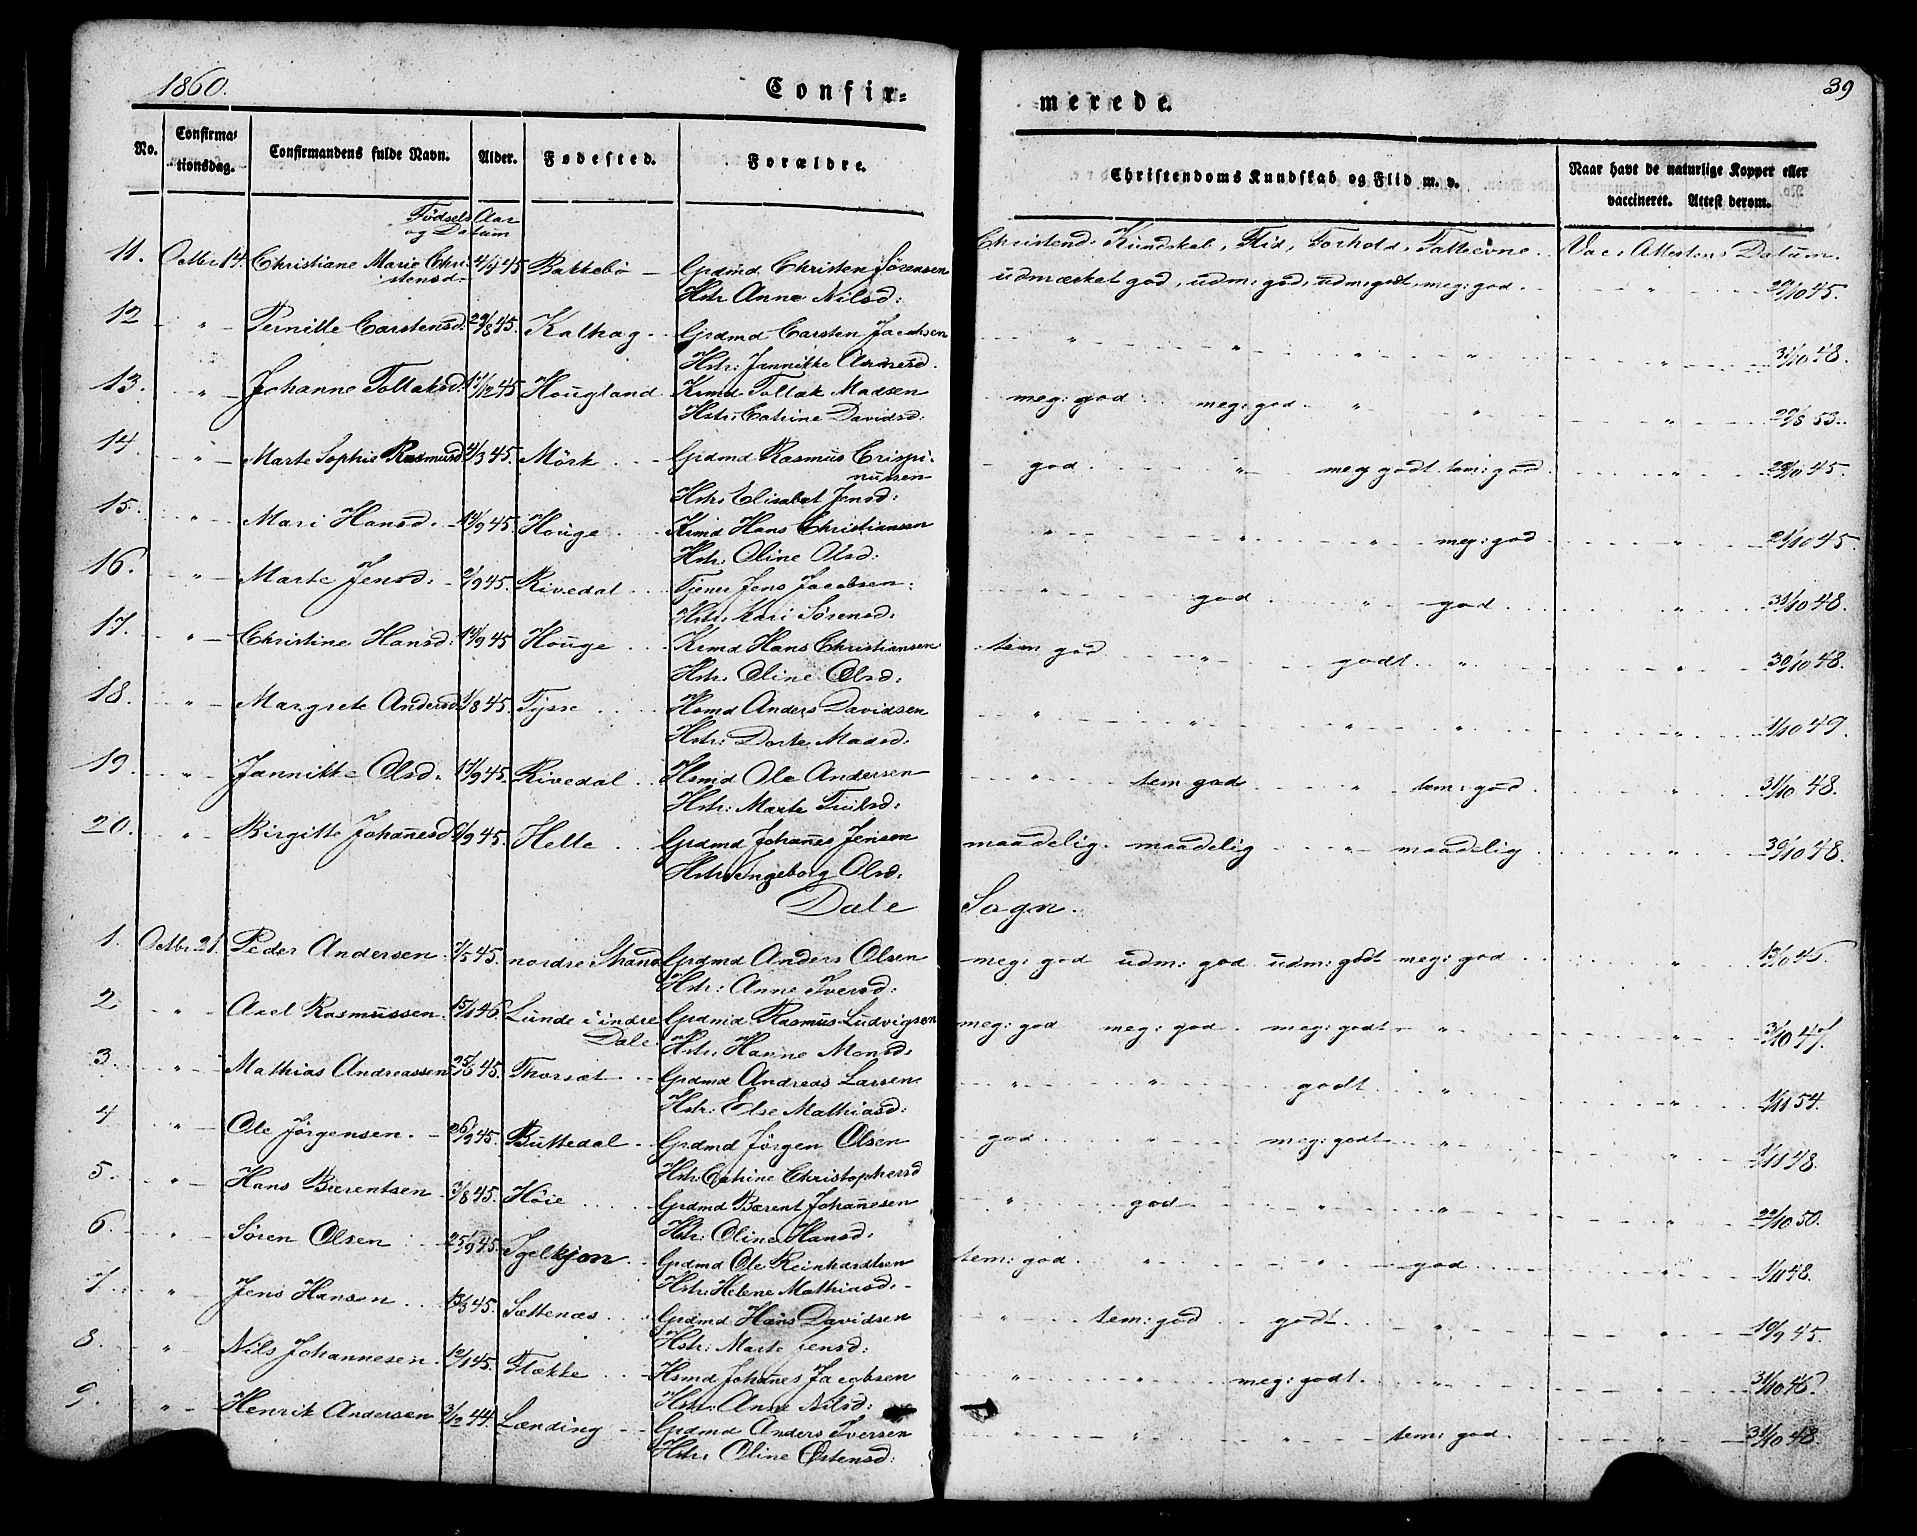 1860.
Confir-
merede.
39
No.
Confirma-
tionsdag.
Confirmandens fulde Navn.
Alder.
Fødested.
Forældre.
Christendoms Kundskab og Flid m. v.
Naar havt de naturlige Kopper eller
vaccineret. Attest derom.
Fødsels Aar
og Datum
Christend: Kundskab, Flid, Forhold, Fatteevne. Vac: Attestens Datum.
11. Octbr 14. Christiane Marie Chri- 4/9 45 Bakkebø Grdmd Christen Sørensen
stensd: Hstr: Anne Nilsd:
udmærket god, udm: god, udm: godt, meg: god. " 29/10 45.
12 " Pernille Carstensd. 29/8 45. Kalhag Grdmd Carsten Jacobsen
Hstr: Jannikke Andersd.
" " " " " 31/10 48.
13. " Johanne Tollaksd. 17/12 45 Hougland Krmd Tollak Madsen
Hstr: Catrine Davidsd:
meg: god meg: god " " " 29/8 53.
14. " Marte Sophie Rasmusd 4/3 45. Mörk Grdmd Rasmus Crispi-
nussen
Hstr: Elisabet Jensd:
god " meg godt tem: god " 29/10 45.
15. " Mari Hansd. 14/9 45. Houge Krmd Hans Christiansen
Hstr: Oline Olsd:
" " " meg: god " 21/10 45.
16. " Marte Jensd: 2/9 45. Rivedal Tjener Jens Jacobsen
Hstr: Kari Sørensd:
" god " god " 31/10 48.
17. " Christine Hansd: 14/9 45 Houge Krmd Hans Christiansen
Hstr: Oline Olsd:
tem god " godt " " 30/10 48.
18. " Margrete Andersd 1/8 45. Tysse Hsmd Anders Davidsen
Hstr: Dorte Madsd:
" " " " " 1/10 49.
19. " Jannikke Olsd. 17/9 45. Rivedal Hsmd Ole Andersen
Hstr: Marte
" tem: god " tem: god " 31/10 48.
20. " Birgitte Johanesd 9/9 45. Helle Grdmd Johanes Jensen
Hstr: Ingeborg Olsd:
maadelig maadelig " maadelig " 30/10 48.
Dale Sogn.
1. Octbr 21. Peder Andersen 7/5 45. nordre Strand Grdmd Anders Olsen
Hstr: Anne Iversd:
meg: god udm: god udm: godt meg: god "
2 " Axel Rasmussen. 15/1 46. Lunde i indre Grdmd Rasmus Ludvigsen
Dale Hstr: Hanne Monsd:
meg: god meg: god. meg: godt " " 3/10 47.
3. " Mathias Andreassen 25/6 45. Thorsæt Grdmd Andreas Larsen.
Hstr: Else Mathiasd:
" " godt " " 1/11 54.
4 " Ole Jørgensen. 26/9 45. Buttedal Grdmd Jørgen Olsen
Hstr: Catrine Christophersd
god " meg: godt " " 1/11 48.
5. " Hans Bærentsen 3/8 45. Höie Grdmd Bærent Johanesen
Hstr: Oline Hansd:
" god " " " 22/10 50.
6. " Søren Olsen 25/9 45. Igelkjøn Grdmd Ole Reinhardtsen
Hstr: Helene Mathiasd:
tem: god " " god " 1/11 48.
7. " Jens Hansen 13/3 45. Sættenæs Grdmd Hans Davidsen
Hstr: Marte Jensd:
" tem: god godt " " 10/9 45.
8. " Nils Johannesen. 12/1 45. Flække Hsmd Johanes Jacobsen
Hstr: Anne Nilsd:
" " meg: godt " "
9. " Henrik Andersen 3/12 44. Lænding Grdmd Anders Iversen
Hstr: Oline Östensd:
" " " tem: god " 31/10 48.